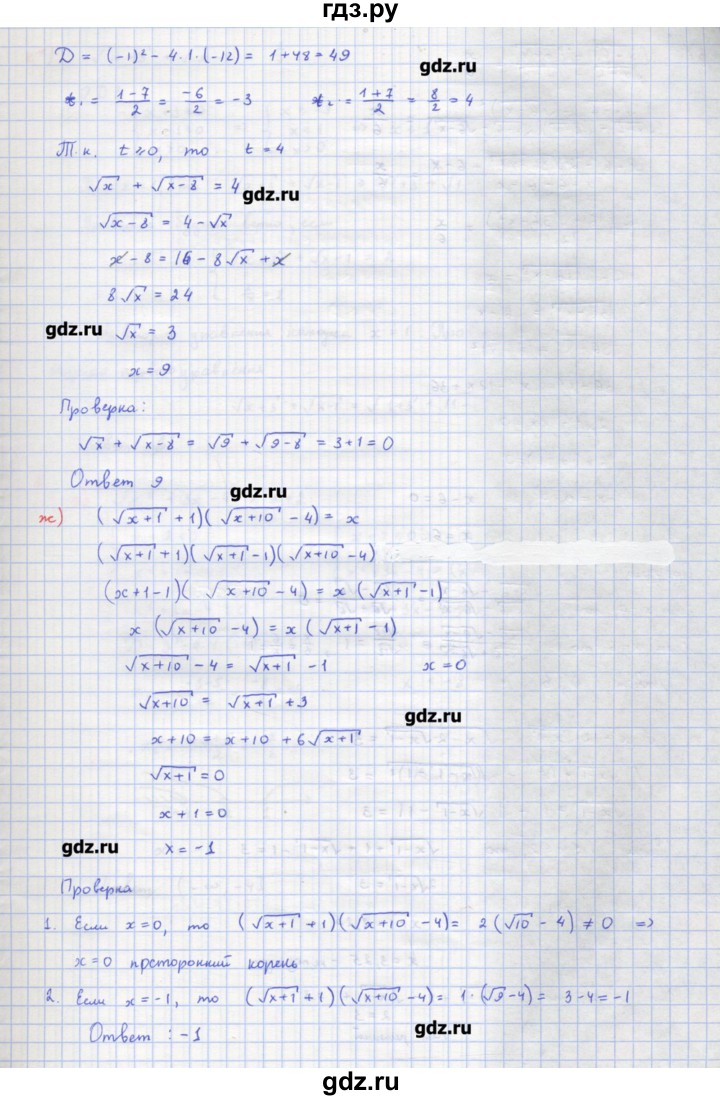 гдз.ру
D = (-1)² - 4·1·(-12) = 1+48 = 49
gdz.ru
t₁ = (1-7)/2 = -6/2 = -3    t₂ = (1+7)/2 = 8/2 = 4
Т.к. t ≥ 0, то t = 4
√x + √(x-8) = 4
gdz.ru
√(x-8) = 4 - √x
x - 8 = 16 - 8√x + x
8√x = 24
gdz.ru
√x = 3
x = 9
Проверка:
√x + √(x-8) = √9 + √(9-8) = 3+1 = 0
Ответ 9
gdz.ru
ж) (√(x+1) + 1)(√(x+10) - 4) = x
(√(x+1) + 1)(√(x+1) - 1)(√(x+10) - 4)
(x+1-1)(√(x+10) - 4) = x (√(x+1) - 1)
x (√(x+10) - 4) = x (√(x+1) - 1)
√(x+10) - 4 = √(x+1) - 1    x = 0
√(x+10) = √(x+1) + 3
gdz.ru
x+10 = x+10 + 6√(x+1)
√(x+1) = 0
x + 1 = 0
gdz.ru
x = -1
Проверка
1. Если x = 0, то (√(x+1) + 1)(√(x+10) - 4) = 2(√10 - 4) ≠ 0 =>
x = 0 престоронний корень
2. Если x = -1, то (√(x+1) + 1)(√(x+10) - 4) = 1·(√9 - 4) = 3-4 = -1
Ответ : -1
gdz.ru
gdz.ru